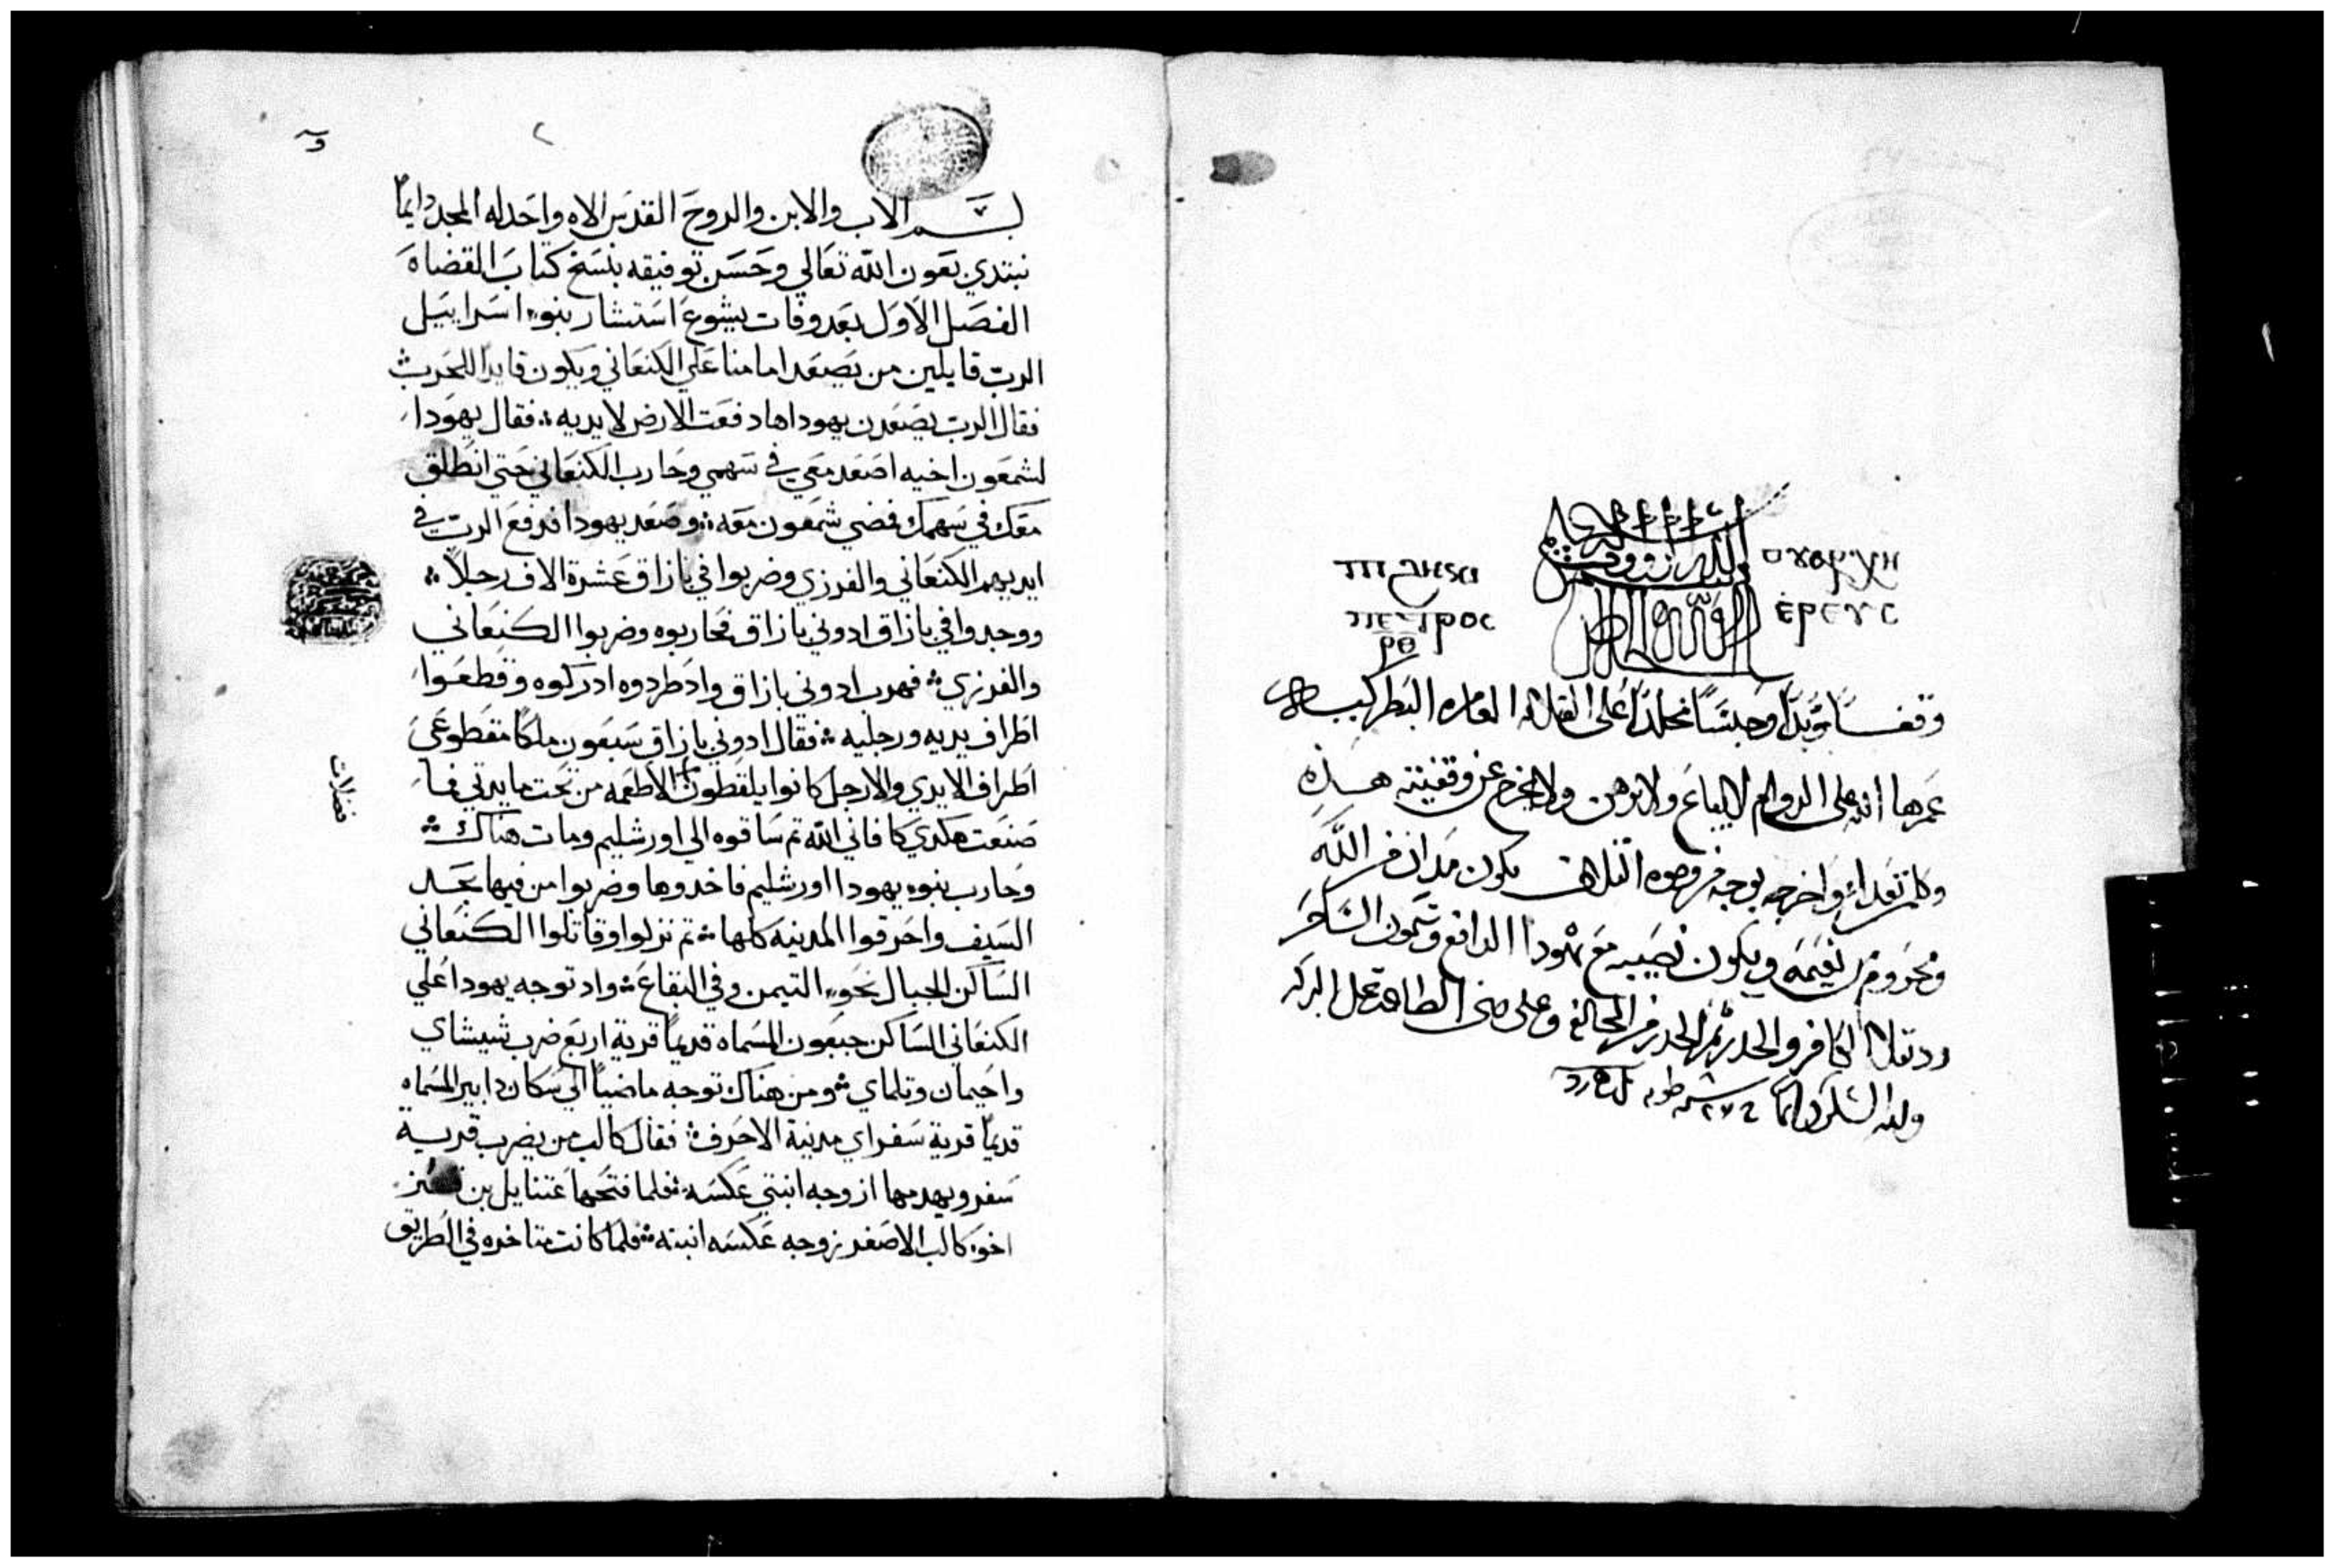 ⲡⲓϩⲏⲕⲓ
ⲡⲉⲧⲣⲟⲥ
ⲣⲑ
وقفا مؤبدا وحبسا مخلدا على القلاية العامره البطركيه
عمرها الله على الدوام لا يباع ولا يرهن ولا يخرج عن وقفيته هذه
وكلمن تعدا واخرجه بوجه من وجوه التلاف يكون مدان من الله
ومحروم من نعيمه ويكون نصيبه مع يهودا الدافع وسيمون الساحر
ودقلاديانوس الكافر والحدر ثم الحدر من المخالفه وعلى بنى الطاعه تحل البركه
ولله الشكر دايما
٢
بسم الاب والابن والروح القدس الاه واحد له المجد دايما
نبتدي بعون الله تعالي وحسن توفيقه بنسخ كتاب القضاه
الفصل الاول بعد وفات يشوع استشار بنوا اسراييل
الرب قايلين من يصعد امامنا علي الكنعاني ويكون قايدا للحرب
فقال الرب يصعدن يهودا ها دفعت الارض لايديه فقال يهودا
لشمعون اخيه اصعد معي في سهمي وحارب الكنعاني حتي انطلق
معك في سهمك فمضي شمعون معه وصعد يهودا فدفع الرب في
ايديهم الكنعاني والفرزي وضربوا في بازاق عشرة الاف رجلا
ووجدوا في بازاق ادوني بازاق فحاربوه وضربوا الكنعاني
والفرزي فهرب ادوني بازاق واد طردوه ادركوه وقطعوا
اطراف يديه ورجليه فقال ادوني بازاق سبعون ملكا مقطوعي
اطراف الايدي والارجل كانوا يلقطون الاطعمه من تحت مايدتي فما
فضلات
صنعت هكدي كافاني الله تم ساقوه الي اورشليم ومات هناك
وحارب بنوا يهودا اورشليم فاخدوها وضربوا من فيها بحد
السيف واحرقوا المدينه كلها تم نزلوا وقاتلوا الكنعاني
الساكن الجبال نحو التيمن وفي البقاع واد توجه يهودا علي
الكنعاني الساكن حبعون المسماه قديما قرية اربع ضرب شيشاي
واحيمان وتلماي ومن هناك توجه ماضيا الي سكان دابير المسماه
قديما قرية سفر اي مدينة الاحرف فقال كالب من يضرب قرية
سفر ويهدمها ازوجه ابنتي عكسه فلما فتحها عتنايل بن قنز
اخو كالب الاصغر زوجه عكسه ابنته فلما كانت متاخده في الطريق